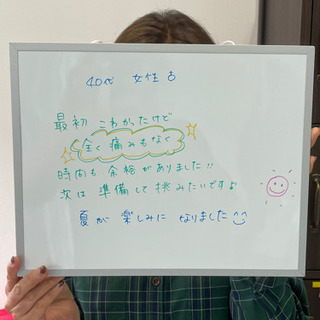 40代 女性
最初 こわかったけど
全く痛みもなく
時間も 余裕がありました!!
次は 準備して 挑みたいです♪
夏が 楽しみに なりました^^